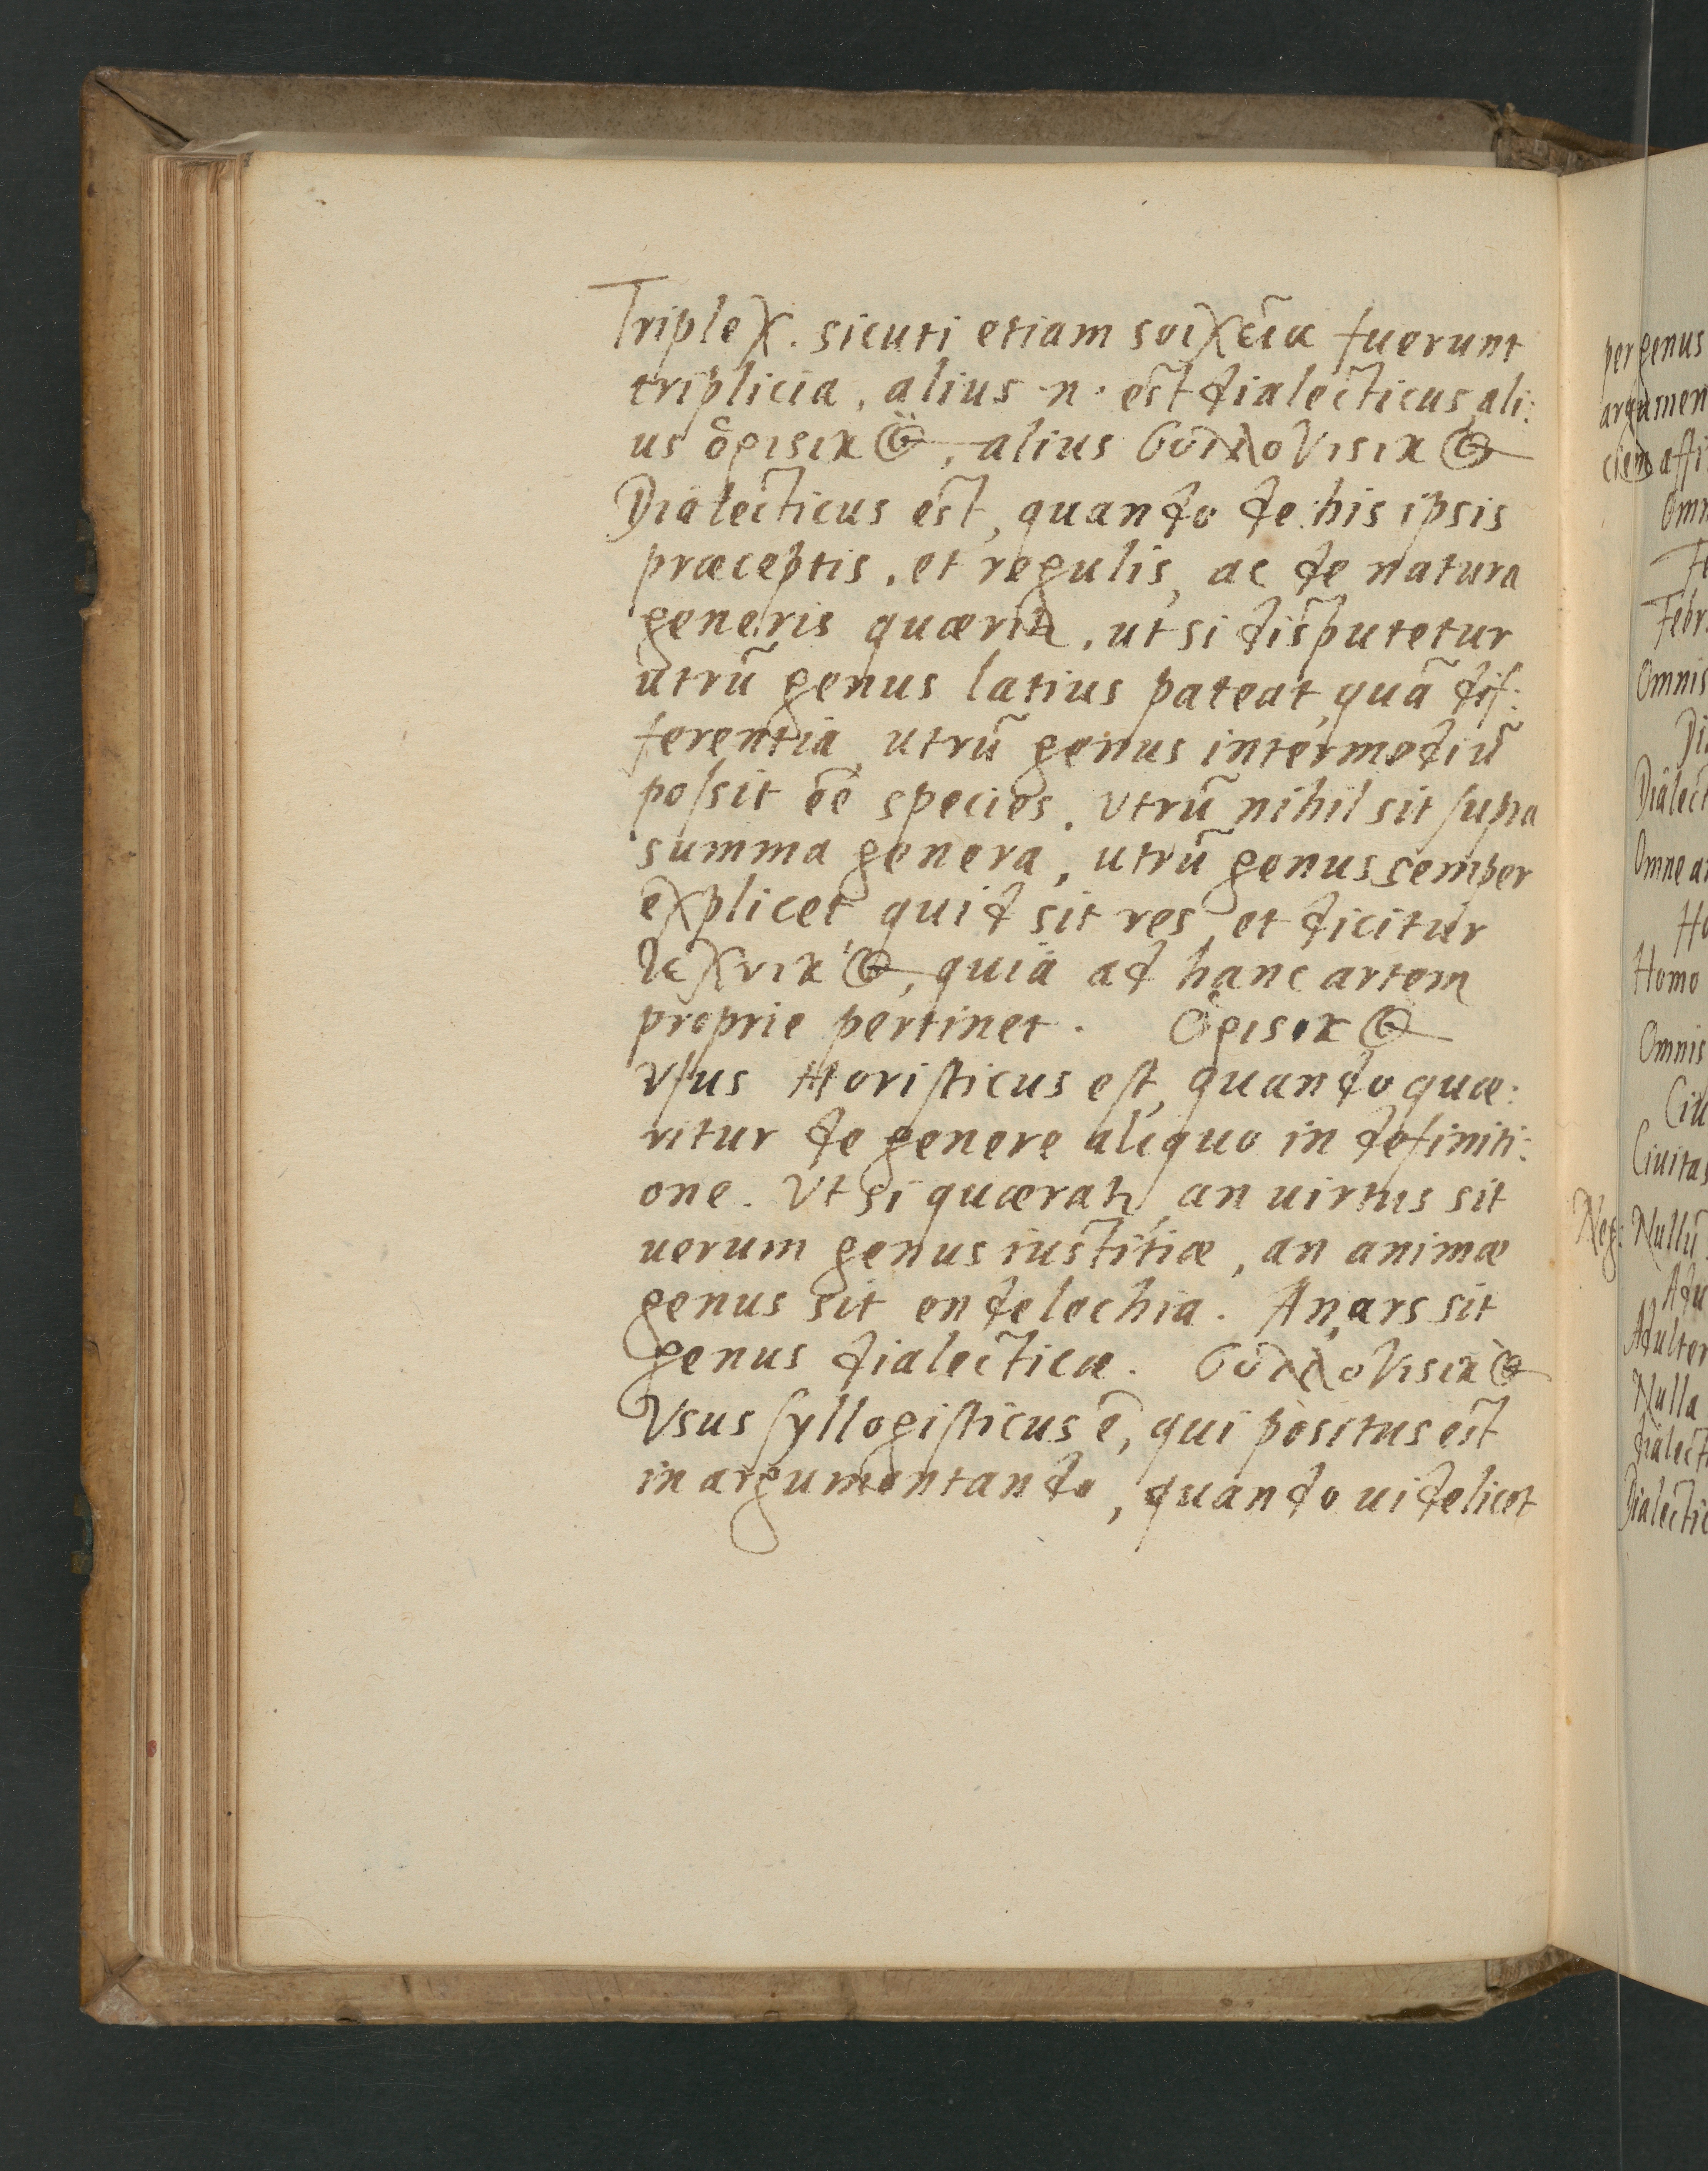 Triplex. sicuti etiam ςοιχεῖα fuerunt
triplicia, alius .n. est dialecticus, ali:
us ὁριςικὸς, alius συλλογιςικὸς
Dialecticus est, quando de his ipsis
præceptis, et regulis, ac de natura
generis quæritr, ut si disputetur
utrū genus latius pateat, quā dif:
ferentia, utrū genus intermediū
possit eē species, utrū nihil sit supra
summa genera, utrū genus semper
explicet quid sit res, et dicitur
τεχνικὸς, quia ad hanc artem
proprie pertinet. Ὁριςικὸς
Vsus Horisticus est, quando quæ:
ritur de genere aliquo in definiti:
one. Vt si quæratr, an uirtus sit
uerum genus iustitiæ, an animæ
genus sit endelechia. An ars sit
genus dialecticæ. συλλογιςικὸς
Vsus syllogisticus ē, qui positus est
in argumentando, quando uidelicet
per genus
argumen
ciem affi
Omn
Fe
Febr.
Omnis
Di
Dialect
Omne a
Ho
Homo
Omnis
Ciu
Ciuitas
Neg: Nullū
Adu
Adulter
Nulla
dialect
Dialectic